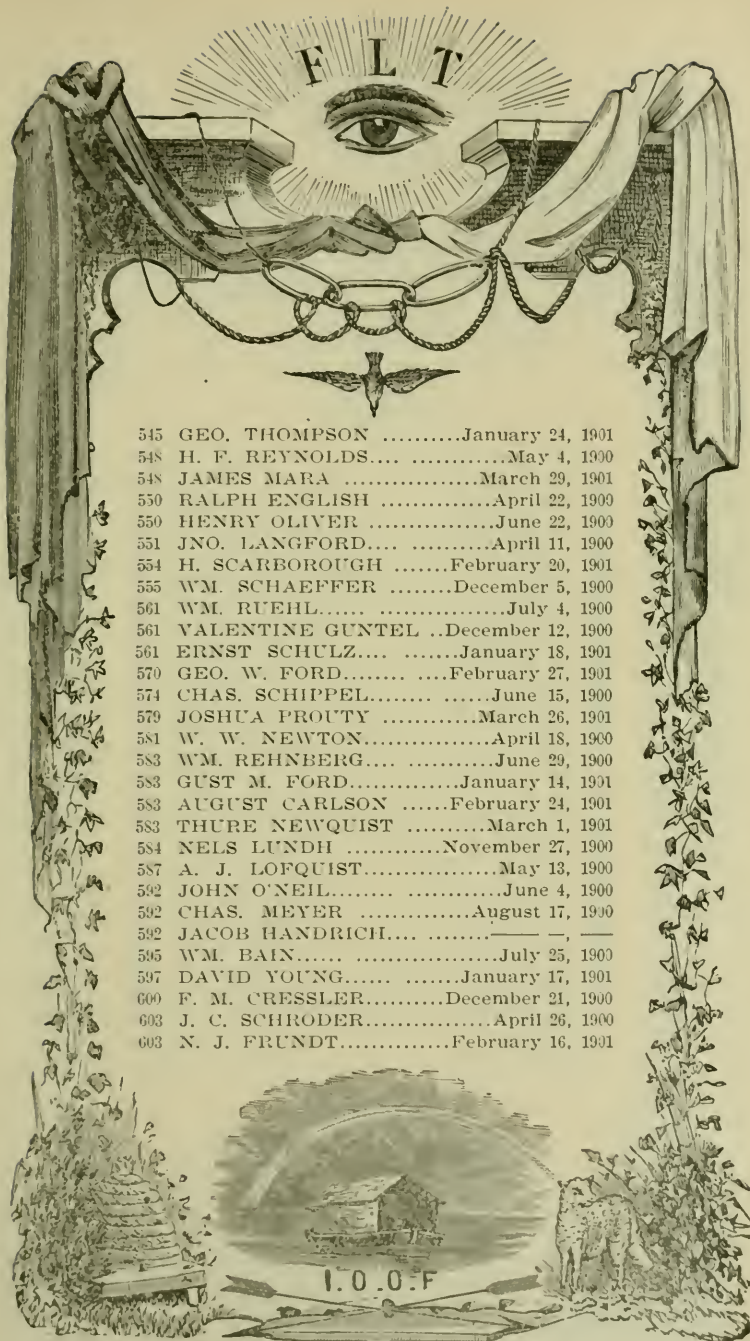 F L T
545 GEO. THOMPSON ..........January 24, 1901
548 H. F. REYNOLDS.... ..........May 4, 1900
548 JAMES MARA ..............March 29, 1901
550 RALPH ENGLISH .............April 22, 1900
550 HENRY OLIVER ...............June 22, 1900
551 JNO. LANGFORD.... ..........April 11, 1900
554 H. SCARBOROUGH .......February 20, 1901
555 WM. SCHAEFFER ........December 5, 1900
561 WM. RUEHL...... ..................July 4, 1900
561 VALENTINE GUNTEL ..December 12, 1900
561 ERNST SCHULZ.... ........January 18, 1901
570 GEO. W. FORD........ ....February 27, 1901
574 CHAS. SCHIPPEL........ ......June 15, 1900
579 JOSHUA PROUTY ............March 26, 1901
581 W. W. NEWTON..............April 18, 1900
583 WM. REHNBERG.... ..........June 29, 1900
583 GUST M. FORD...........January 14, 1901
583 AUGUST CARLSON ......February 24, 1901
583 THURE NEWQUIST ..........March 1, 1901
584 NELS LUNDH ............November 27, 1900
587 A. J. LOFQUIST...............May 13, 1900
592 JOHN O'NEIL...................June 4, 1900
592 CHAS. MEYER ............August 17, 1900
592 JACOB HANDRICH.... ........—— –, ——
595 WM. BAIN...... ................July 25, 1900
597 DAVID YOUNG...... .......January 17, 1901
600 F. M. CRESSLER..........December 21, 1900
603 J. C. SCHRODER...............April 26, 1900
603 N. J. FRUNDT.............February 16, 1901
I.O.O.F